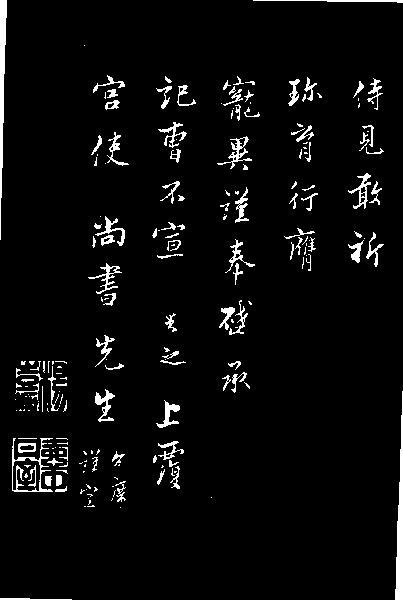 侍見敢祈
珍育行膺
寵異謹奉承
記曹不宣 之上覆
宮使 尚書先生
台
謹空